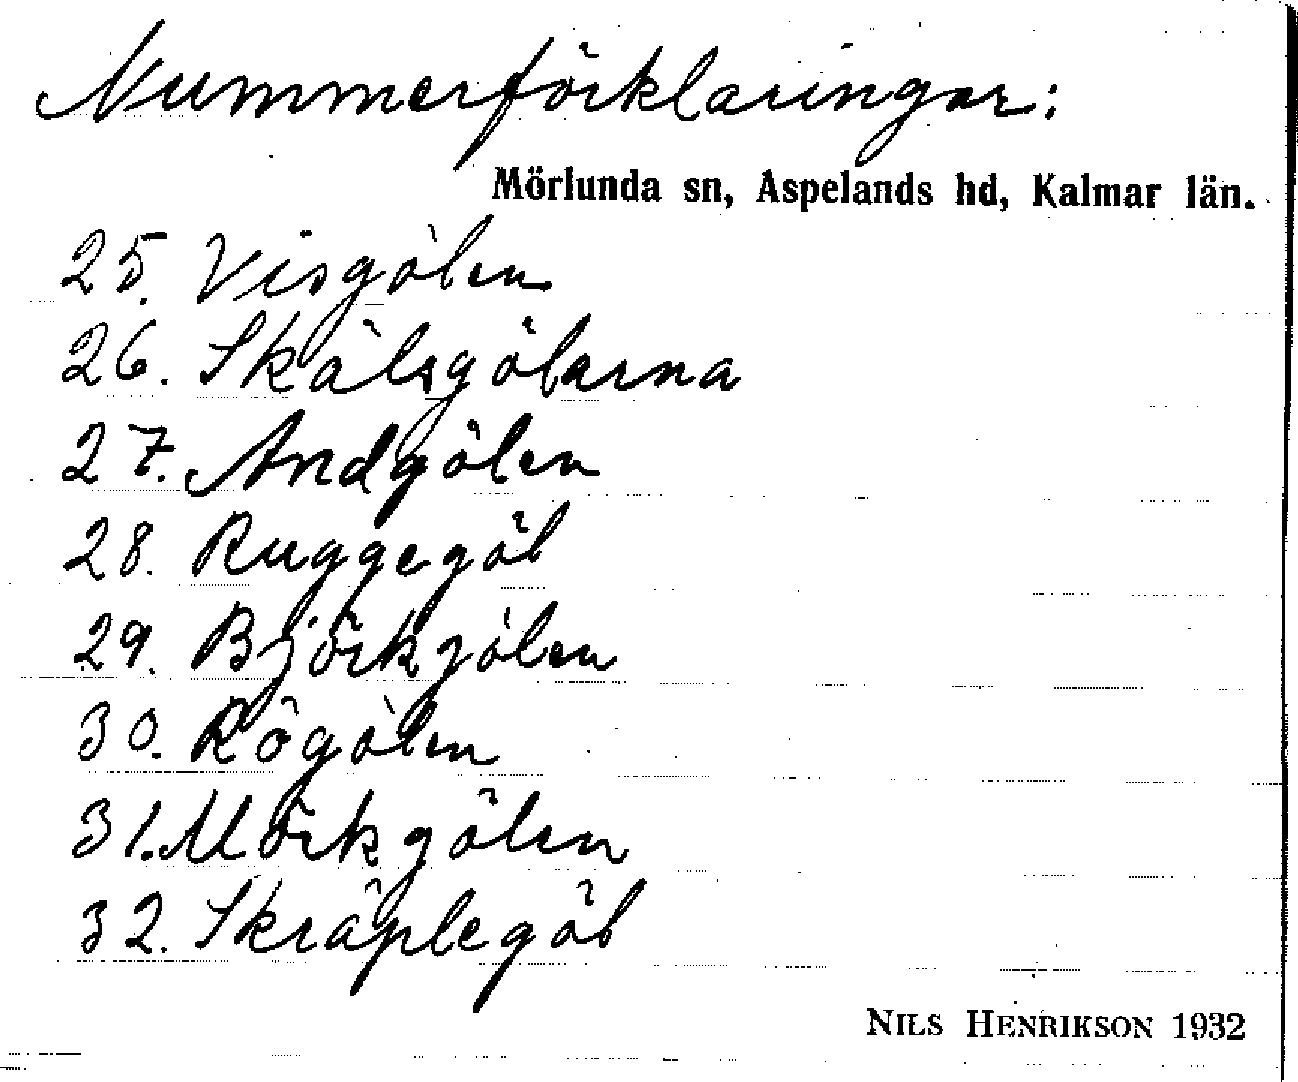 Nummerförklaringar:
Mörlunda sn, Aspelands hd, Kalmar län.
25. Visgölen
26. Skälsgölarna
27. Andgölen
28. Ruggegöl
29. Björkgölen
30. Rögölen
31. Mörkgölen
32. Skräplegöl
NILS HENRIKSON 1932